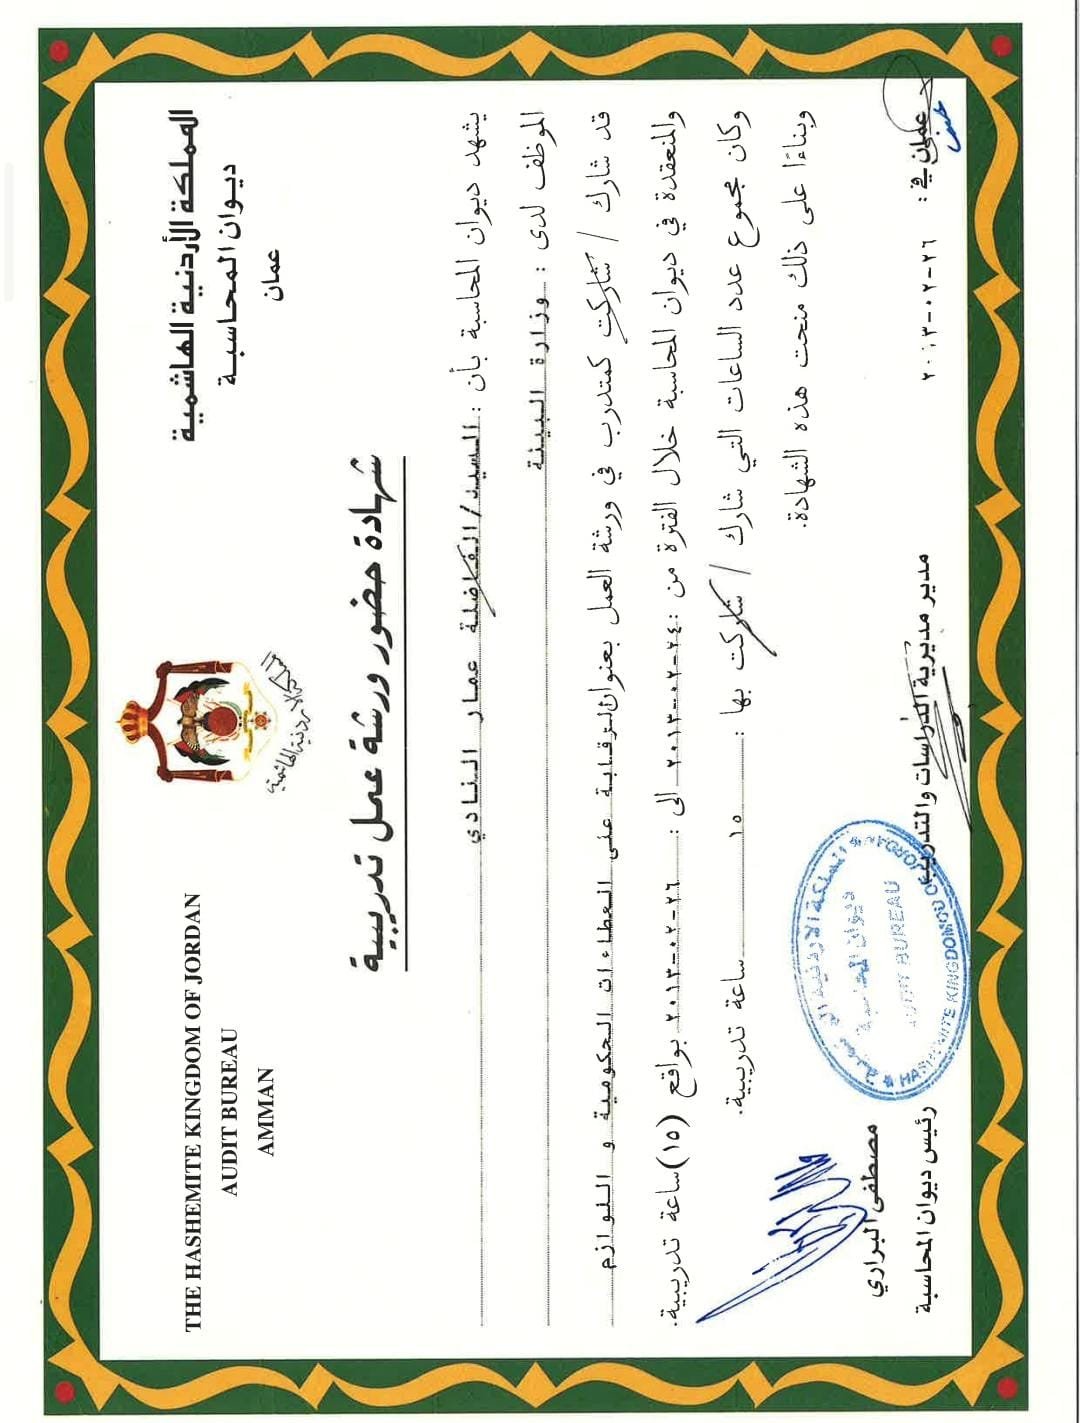 المملكة الأردنية الهاشمية
ديوان المحاسبة
عمان
THE HASHEMITE KINGDOM OF JORDAN
AUDIT BUREAU
AMMAN
المملكة الأردنية الهاشمية
شهادة حضور ورشة عمل تدريبية
يشهد ديوان المحاسبة بأن : السيد/الفاضلة عمار النادي
الموظف لدى : وزارة البيئة
قد شارك / شاركت كمتدرب في ورشة العمل بعنوان الرقابة على العطاءات الحكومية و اللوازم
والمنعقدة في ديوان المحاسبة خلال الفترة من : ٢٤-٠٢-٢٠١٣ الى : ٢٦-٠٢-٢٠١٣ بواقع (١٥) ساعة تدريبية.
وكان مجموع عدد الساعات التي شارك / شاركت بها : ١٥ ساعة تدريبية.
وبناءًا على ذلك منحت هذه الشهادة.
عمان في : ٢٦-٠٢-٢٠١٣
مدير مديرية الدراسات والتدريب
مصطفى البراري
رئيس ديوان المحاسبة
المملكة الاردنية الهاشمية
ديوان المحاسبة
AUDIT BUREAU
HASHEMITE KINGDOM OF JORDAN